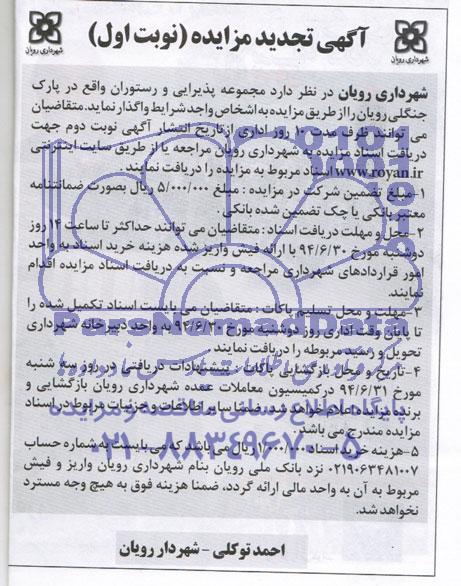 آگهی تجدید مزایده (نوبت اول)
شهرداری رویان
شهرداری رویان
شهرداری رویان در نظر دارد مجموعه پذیرایی و رستوران واقع در پارک
جنگلی رویان را از طریق مزایده به اشخاص واجد شرایط واگذار نماید. متقاضیان
می توانند ظرف مدت ۱۰ روز اداری از تاریخ انتشار آگهی نوبت دوم جهت
دریافت اسناد مزایده به شهرداری رویان مراجعه یا از طریق سایت اینترنتی
www.royan.ir اسناد مربوط به مزایده را دریافت نمایند
۱-مبلغ تضمین شرکت در مزایده : مبلغ ۵/۰۰۰/۰۰۰ ریال بصورت ضمانتنامه
معتبر بانکی یا چک تضمین شده بانکی .
۲-محل و مهلت دریافت اسناد : متقاضیان می توانند حداکثر تا ساعت ۱۴ روز
دوشنبه مورخ ۹۴/۶/۳۰ با ارائه فیش واریز شده هزینه خرید اسناد به واحد
امور قراردادهای شهرداری مراجعه و نسبت به دریافت اسناد مزایده اقدام
نمایند.
۳-مهلت و محل تسلیم پاکات : متقاضیان می بایست اسناد تکمیل شده را
تا پایان وقت اداری روز دوشنبه مورخ ۹۴/۶/۳۰ به واحد دبیرخانه شهرداری
تحویل و رسید مربوطه را دریافت نمایند
۴-تاریخ و محل بازگشایی پاکات : پیشنهادات دریافتی در روز سه شنبه
مورخ ۹۴/۶/۳۱ در کمیسیون معاملات عمده شهرداری رویان بازگشایی و
برنده مزایده اعلام خواهد شد. ضمنا سایر اطلاعات و جزئیات مربوط در اسناد
مزایده مندرج می باشد .
۵-هزینه خرید اسناد ۱/۰۰۰/۰۰۰ ریال می باشد که می بایست به شماره حساب
۰۲۱۹۰۶۳۴۸۱۰۰۷ نزد بانک ملی رویان بنام شهرداری رویان واریز و فیش
مربوط به آن به واحد مالی ارائه گردد، ضمنا هزینه فوق به هیچ وجه مسترد
نخواهد شد.
احمد توکلی - شهردار رویان
ParsNamadData
پایگاه اطلاع رسانی مناقصه و مزایده
۰۲۱-۸۸۳۴۹۶۷۰-۵